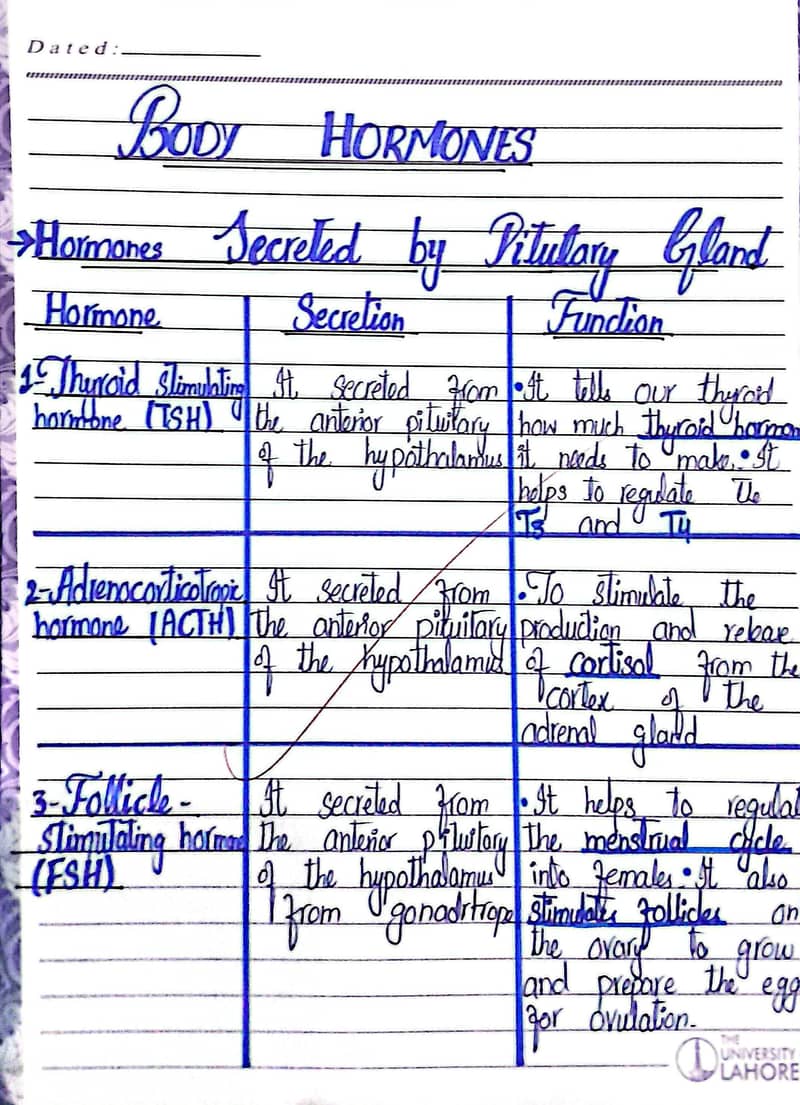 Dated:
BODY HORMONES
→Hormones Secreted by Pitutary Gland
Hormone
Secretion
Function
1-Thyroid stimulating
hormone (TSH)
It secreted from
the anterior pituitary
of the hypothalamus
•It tells our thyroid
how much thyroid hormon
it needs to make.•It
helps to regulate the
T3 and T4
2-Adrenocorticotropic
hormone (ACTH)
It secreted from
the anterior pituitary
of the hypothalamus
•To stimulate the
production and
of cortisol from the
cortex of the
adrenal gland
3-Follicle-
stimulating hormone
(FSH)
It secreted from
the anterior pituitary
of the hypothalamus
from gonadrtrope
•It helps to regulat
the menstrual cycle
into females.•It also
stimulates follicles on
the ovary to grow
and prepare the egg
for ovulation.
THE
UNIVERSITY
LAHORE